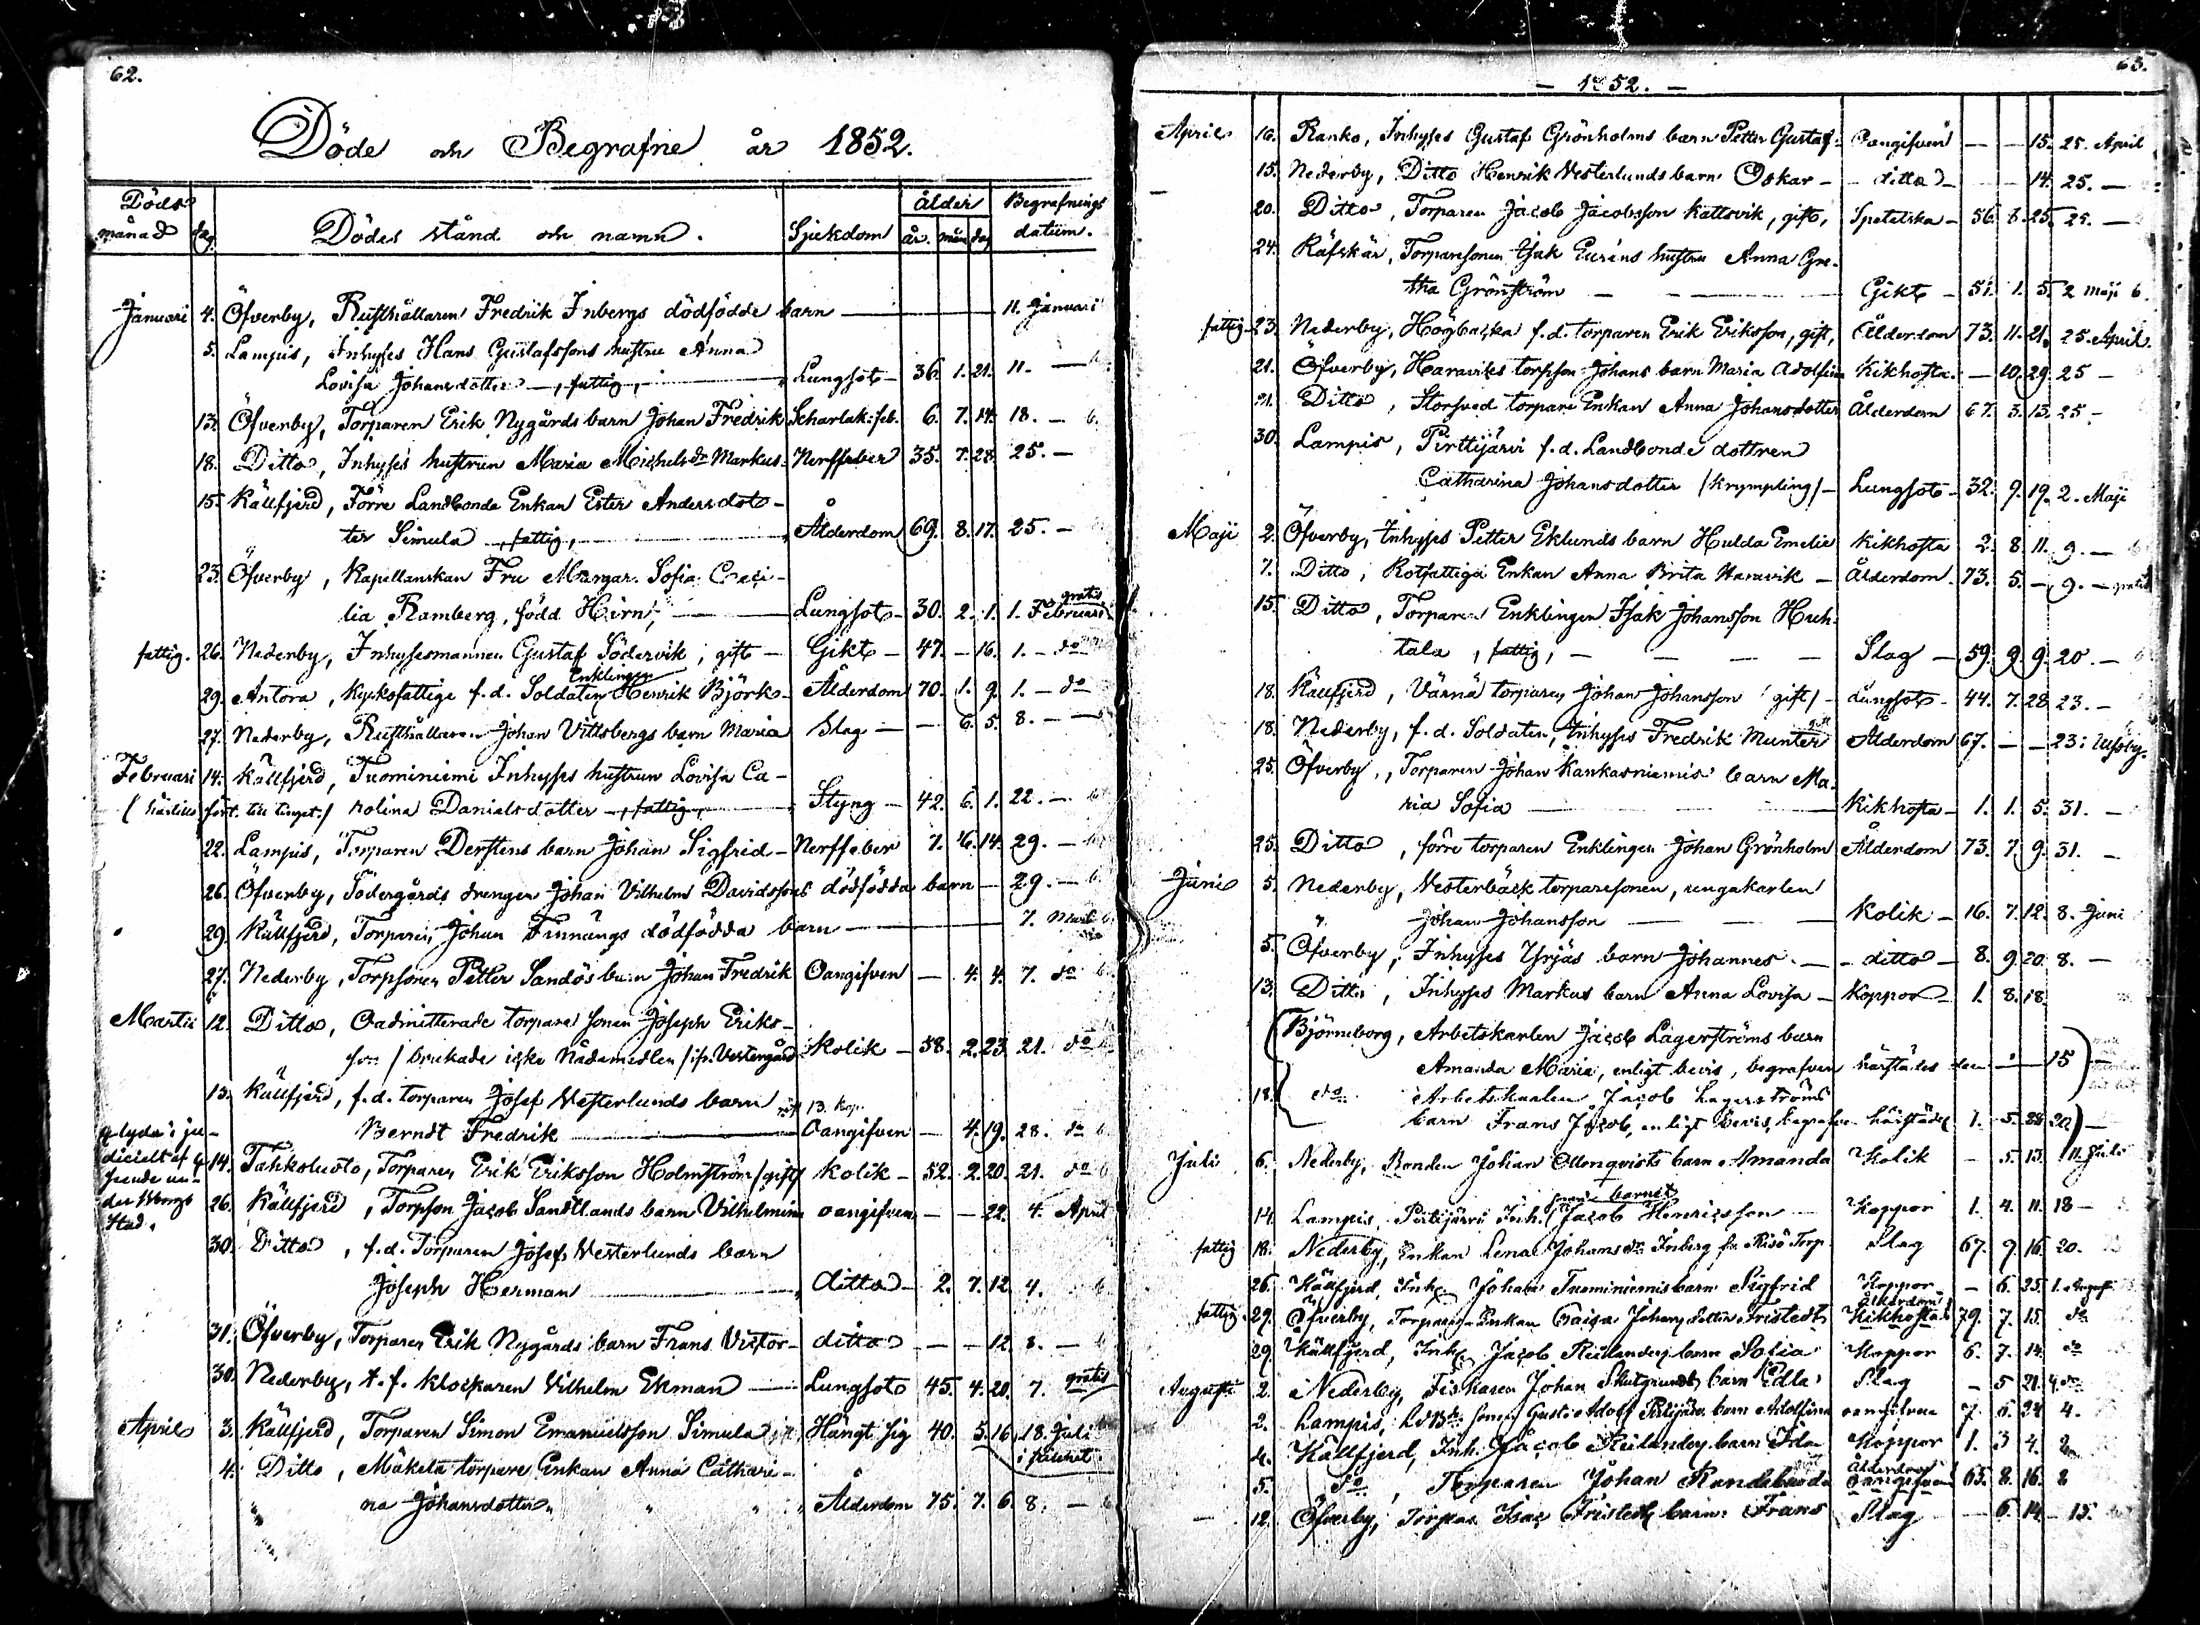 62.
Döde och Begrafne år 1852.
Döds månad dag Dödas stånd och namn. Sjukdom ålder år. mån dag Begrafnings datum.
Januari 4. Öfverby, Rusthållaren Fredrik Inbergs dödfödde barn — 11. Januari
5. Lampis, Inhyses Hans Gustafssons hustru Anna
Lovisa Johansdotter —, fattig, — Lungsot — 36. 1. 21. 11. —
13. Öfverby, Torparen Erik Nygårds barn Johan Fredrik Scharlak: feb. 6. 7. 14. 18. —
18. Ditto, Inhyses hustrun Maria Michelsdr Markus — Nerffeber 35. 7. 28. 25. —
15. Källfjerd, Förre Landbonde Enkan Ester Andersdot-
ter Simula —, fattig, — Ålderdom 69. 8. 17. 25. —
23. Öfverby, Kapellanskan Fru Margar. Sofia Ceci-
lia Ramberg, född Hirn, — Lungsot — 30. 2. 1. 1. Februari gratis
fattig. 26. Nederby, Inhysesmannen Gustaf Södervik, gift — Gikt — 47. — 16. 1. — do
29. Antora, Kyrkofattige f.d. Soldaten Enklingen Henrik Björk — Ålderdom 70. 1. 9. 1. — do
27. Nederby, Rusthållaren Johan Vittsbergs barn Maria Slag — — 6. 5. 8. —
Februari 14. Källfjerd, Tuominiemi Inhyses hustrun Lovisa Ca-
rolina Danielsdotter —, fattig, — Styng — 42. 6. 1. 22. —
22. Lampis, Torparen Derstens barn Johan Sigfrid — Nerffeber 7. 6. 14. 29. —
26. Öfverby, Södergårds drengen Johan Vilhelm Davidssons dödfödda barn — 29. —
29. Källfjerd, Torparen Johan Finnängs dödfödda barn — 7. Mart
27. Nederby, Torpsonen Petter Sandös barn Johan Fredrik Oangifven — 4. 4. 7. do
Martii 12. Ditto, Oadmitterade torpare sonen Joseph Eriks-
son / brukade icke Nådemedlen / Vestergård Kolik — 58. 2. 23. 21. do
13. Källfjerd, f.d. torparen Josef Vesterlunds barn 13. Kop.
Berndt Fredrik — Oangifven — 4. 19. 28. do
14. Tahkoluoto, Torparen Erik Eriksson Holmström / gift / Kolik — 52. 2. 20. 21. do
26. Källfjerd, Torpson Jacob Sandtlands barn Vilhelmina oangifven — — 22. 4. April
30. Ditto, f.d. Torparen Josef Vesterlunds barn
Joseph Herman — ditto — 2. 7. 12. 4.
31. Öfverby, Torparen Erik Nygårds barn Frans Victor — ditto — — 12. 8. —
30. Nederby, t.f. Klockaren Vilhelm Ekman — Lungsot 45. 4. 20. 7. gratis
April 3. Källfjerd, Torparen Simon Emanuelsson Simula Hängt sig 40. 5. 16. 18. Juli
4. Ditto, Mäkelä torpare Enkan Anna Cathari-
na Johansdotter Ålderdom 75. 7. 6. 8. —
63.
— 1852. —
April 16. Ranko, Inhyses Gustaf Grönholms barn Petter Gustaf Oangifven — — 15. 25. April
15. Nederby, Ditto Henrik Vesterlunds barn Oskar — ditto — — 14. 25. —
20. Ditto, Torparen Jacob Jacobsson Kattsvik, gift, Spetelska — 56. 8. 25. 25. —
24. Räfskär, Torparesonen Isak Eurèns hustru Anna Gre-
tha Grönström — Gikt — 51. 1. 5. 2 Maji
fattig 23. Nederby, Högbacka f.d. torparen Erik Eriksson, gift, Ålderdom 73. 11. 21. 25. April.
21. Öfverby, Haraviks torpson Johans barn Maria Adolfina Kikhosta. — 10. 29. 25 —
21. Ditto, Storsved torpare Enkan Anna Johansdotter Ålderdom 67. 3. 13. 25 —
30. Lampis, Pirttijärvi f.d. Landbonde dottren
Catharina Johansdotter / krympling / — Lungsot — 32. 9. 19. 2. Maji
Maji 2. Öfverby, Inhyses Petter Eklunds barn Hulda Emelie Kikhosta 2. 8. 11. 9. —
7. Ditto, Rotfattiga Enkan Anna Brita Haravik — Ålderdom. 73. 5. — 9. — gratis
15. Ditto, Torparen Enklingen Isak Johansson Huh-
tala, fattig, — Slag — 59. 9. 9. 20. —
18. Källfjerd, Värnä torparen Johan Johansson / gift / — Lungsot — 44. 7. 28. 23. —
18. Nederby, f.d. Soldaten, Inhyses Fredrik Munter Ålderdom 67. — — 23: Ulfsby.
25. Öfverby, Torparen Johan Kankasniemis barn Ma-
ria Sofia — Kikhosta — 1. 1. 5. 31. —
25. Ditto, förre torparen Enklingen Johan Grönholm Ålderdom 73. 7. 9. 31. —
Junii 5. Nederby, Vesterback torparesonen, ungakarlen
Johan Johansson — Kolik — 16. 7. 12. 8. Juni
5. Öfverby, Inhyses Yrjäs barn Johannes. — ditto — 8. 9. 20. 8. —
13. Ditto, Inhyses Markus barn Anna Lovisa — Koppor — 1. 8. 18.
Björneborg, Arbetskarlen Jacob Lagerströms barn
Amanda Maria, enligt bevis, begrafven härstädes den — — 15 —
18. do Arbetskarlen Jacob Lagerströms
barn Frans Jacob, enligt bevis, begrafven härstädes 1. 5. 28 20 —
Juli 6. Nederby, Bonden Johan Ollonqvists barn Amanda Kolik — 5. 13. 11. Juli
14. Lampis, Pirttijärvi Inh. Jacob Henricsson barnet Koppor 1. 4. 11. 18 —
fattig 18. Nederby, Enkan Lena Johansdr Inberg fr. Risö Torp. Slag 67. 9. 16. 20.
26. Källfjerd, Inh. Johan Tuominiemis barn Sigfrid Koppor — 6. 25. 1. August
fattig. 29. Öfverby, Torpare Enkan Caisa Johans dotter Fristedt Ålderdom Kikhosta 79. 7. 15. do
29. Källfjerd, Inh. Jacob Reilanders barn Sofia Koppor 6. 7. 14. do
Augusti 2. Nederby, Fiskaren Johan Skutgrunds barn Edla Slag — 5 21. 4. do
2. Lampis, Gustaf Adolf Pirttijärvi barn Adolfina oangifven 7. 6. 24 4.
4. Källfjerd, Inh. Jacob Reilanders barn Ida Koppor 1. 3 4. 8
5. do, Torparen Johan Randelund Ålderdom 65. 8. 16. 8
12. Öfverby, Torpar. Isac Fristedts barn Frans Slag — 6. 14. 15.